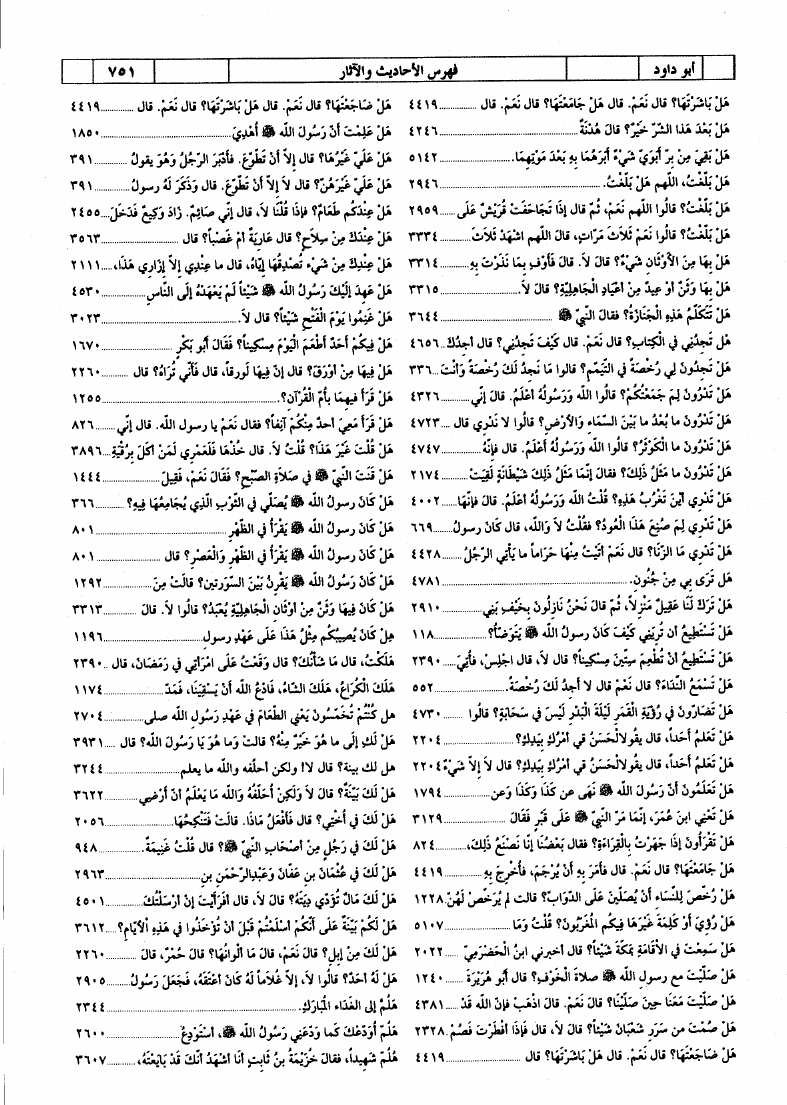 أبو داود
فهرس الأحاديث والآثار
٧٥١
هَلْ بَاشَرْتَهَا؟ قال نَعَمْ. قال هَلْ جَامَعْتَهَا؟ قال نَعَمْ. قال ............. ٤٤١٩
هَلْ بَعْدَ هَذا الشَّرِّ خَيْرٌ؟ قال هُدْنَةٌ ............. ٤٢٤٦
هَلْ بَقِيَ مِنْ بِرِّ أَبَوَيَّ شَيْءٌ أَبَرُّهُمَا بِهِ بَعْدَ مَوْتِهِمَا. ............. ٥١٤٢
هَلْ بَلَّغْتُ، اللّهم هَلْ بَلَّغْتُ. ............. ٢٩٤٦
هَلْ بَلَّغْتُ؟ قالوا اللّهم نَعَمْ، ثُمَّ قال إذَا تَجَاحَفَتْ قُرَيْشٌ عَلَى ...... ٢٩٥٩
هَلْ بَلَّغْتُ؟ قالوا نَعَمْ ثَلَاثَ مَرَّاتٍ، قال اللّهم اشْهَدْ ثَلَاثَ ........ ٣٣٣٤
هَلْ بِهَا مِنَ الأَوْثَانِ شَيْءٌ؟ قال لَا. قالَ فَأَوْفِ بِمَا نَذَرْتَ بِهِ ......... ٣٣١٤
هَلْ بِهَا وَثَنٌ أوْ عِيدٌ مِنْ أَعْيَادِ الْجَاهِلِيَّةِ؟ قالَ لَا. ............. ٣٣١٥
هَلْ تَتَكَلَّمُ هَذِهِ الْجَنَازَةُ؟ فقالَ النَّبيّ ﷺ ............. ٣٦٤٤
هَلْ تجدُني في الْكِتَابِ؟ قال نَعَمْ. قال كَيْفَ تَجِدُنِي؟ قال أَجِدُكَ.. ٤٦٥٦
هَلْ تَجِدُونَ لِي رُخْصَةً في التَّيَمُّمِ؟ قالوا مَا نَجِدُ لَكَ رُخْصَةً وَأَنْتَ ... ٣٣٦
هَلْ تَدْرُونَ لِمَ جَمَعْتُكُمْ؟ قالُوا الله وَرَسُولُهُ أعْلَمُ. قال إنّي ........... ٤٣٢٦
هَلْ تَدْرُونَ ما بُعْدُ ما بَيْنَ السَّمَاءِ وَالأرْضِ؟ قالوا لا نَدْرِي قال ... ٤٧٢٣
هَلْ تَدْرُونَ ما الْكَوْثَرُ؟ قالُوا الله وَرَسُولُهُ أعْلَمُ. قال فإنَّهُ ............ ٤٧٤٧
هَلْ تَدْرُونَ ما مَثَلُ ذَلِكَ؟ فقالَ إنَّمَا مَثَلُ ذَلِكَ شَيْطَانَةٍ لَقِيَتْ ......... ٢١٧٤
هَلْ تَدْرِي أيْنَ تَغْرُبُ هَذِهِ؟ قُلْتُ الله وَرَسُولُهُ أَعْلَمُ. قال فَإنَّهَا ........ ٤٠٠٢
هَلْ تَدْرِي لِمَ صُنِعَ هَذَا الْعُودُ؟ فَقُلْتُ لَا وَالله، قال كَانَ رسولُ ...... ٦٦٩
هَلْ تَدْرِي مَا الزِّنَا؟ قال نَعَمْ أَتَيْتُ مِنْهَا حَرَاماً ما يَأْتِي الرَّجُلُ ....... ٤٤٢٨
هَل تَرَى بِي مِنْ جُنُونٍ. ............. ٤٧٨١
هَلْ تَرَكَ لَنَا عَقِيلٌ مَنْزِلاً، ثُمَّ قالَ نَحْنُ نَازِلُونَ بِخَيْفِ بَنِي ............ ٢٩١٠
هَلْ تَسْتَطِيعُ أنْ تُرِيَنِي كَيْفَ كَانَ رسولُ الله ﷺ يَتَوَضَّأُ؟ ............ ١١٨
هَلْ تَسْتَطِيعُ أنْ تُطْعِمَ سِتِّينَ مِسْكِيناً؟ قال لَا. قال اجْلِسْ، فأُتِيَ.. ٢٣٩٠
هَلْ تَسْمَعُ النِّدَاءَ؟ قال نَعَمْ قال لا أَجِدُ لَكَ رُخْصَةً. ............. ٥٥٢
هَلْ تَضَارُّونَ في رُؤْيَةِ الْقَمَرِ لَيْلَةَ الْبَدْرِ لَيْسَ في سَحَابَةٍ؟ قالُوا ....... ٤٧٣٠
هَلْ تَعْلَمُ أَحَداً، قال يقُولالْحَسَنُ في أمْرُكِ بِيَدِكِ؟ ............. ٢٢٠٤
هَلْ تَعْلَمُ أَحَداً، قال يَقُولالحَسَنُ في أمْرُكِ بِيَدِكِ؟ قال لَا إلاَّ شَيْءٌ ٢٢٠٤
هَلْ تَعْلَمُونَ أنَّ رَسُولَ الله ﷺ نَهَى عن كَذَا وَكَذَا وَعن ............. ١٧٩٤
هَلْ تَعْنِي ابنَ عُمَرَ، إنَّمَا مَرَّ النَّبيُّ ﷺ عَلَى قَبْرٍ فَقَالَ ............. ٣١٢٩
هَلْ تَقْرَأُونَ إذَا جَهَرْتُ بِالْقِرَاءَةِ؟ فقال بَعْضُنَا إنَّا نَصْنَعُ ذَلِكَ، ......... ٨٢٤
هَلْ جَامَعْتَهَا؟ قال نَعَمْ. قال فأَمَرَ بِهِ أنْ يُرْجَمَ، فأُخْرِجَ بِهِ ........... ٤٤١٩
هَلْ رُخِّصَ لِلنِّسَاءِ أنْ يُصَلِّينَ عَلَى الدَّوَابِّ؟ قالت لم يُرَخَّصْ لَهُنَّ. ١٢٢٨
هَلْ رُؤْيَ أوْ كَلِمَةً غَيْرَهَا فِيكُم المُغَرِّبُونَ؟ قُلْتُ وَمَا ............. ٥١٠٧
هَلْ سَمِعْتَ في الإقَامَةِ بِمَكّةَ شَيْئاً؟ قال أخبرني ابنُ الْحَضْرَمِيِّ .. ٢٠٢٢
هَلْ صَلَّيْتَ مع رسولِ الله ﷺ صلاةَ الْخَوْفِ؟ قال أَبُو هُرَيْرَةَ ... ١٢٤٠
هَلْ صَلَّيْتَ مَعَنَا حِينَ صَلَّيْنَا؟ قالَ نَعَمْ. قالَ اذْهَبْ فإنَّ الله قَدْ ... ٤٣٨١
هَلْ صُمْتَ من سَرَرِ شَعْبَانَ شَيْئاً؟ قالَ لَا، قال فَإذَا أفْطَرْتَ فَصُمْ ٢٣٢٨
هَلْ ضَاجَعْتَهَا؟ قال نَعَمْ. قال هَلْ بَاشَرْتَهَا؟ قال ............. ٤٤١٩
هَلْ ضَاجَعْتَهَا؟ قال نَعَمْ. قال هَلْ بَاشَرْتَهَا؟ قال نَعَمْ. قال ............. ٤٤١٩
هَلْ عَلِمْتَ أنَّ رَسُولَ الله ﷺ أُهْدِيَ ............. ١٨٥٠
هَلْ عَلَيَّ غَيْرُهَا؟ قال إلاَّ أنْ تَطَّوَّعَ. فأَدْبَرَ الرَّجُلُ وَهُوَ يقولُ ........ ٣٩١
هَلْ عَلَيَّ غَيْرُهُنَّ؟ قال لَا إلاَّ أنْ تَطَّوَّعَ. قال وَذَكَرَ لَهُ رسولُ ........ ٣٩١
هَلْ عِنْدَكُم طَعَامٌ؟ فإذَا قُلْنَا لَا، قال إنّي صَائِمٌ. زَادَ وَكِيعٌ فَدَخَلَ.... ٢٤٥٥
هَلْ عِنْدَكَ مِنْ سِلَاحٍ؟ قال عَارِيَةً أمْ غَصْباً؟ قال ............. ٣٥٦٣
هَلْ عِنْدِكَ مِنْ شَيْء تُصْدِقُهَا إيَّاهُ، قال ما عِنْدِي إلاَّ إزَارِي هَذَا، .... ٢١١١
هَلْ عَهِدَ إلَيْكَ رَسُولُ الله ﷺ شَيْئاً لَمْ يَعْهَدْهُ إلَى النَّاسِ ......... ٤٥٣٠
هَلْ غَنِمُوا يَوْمَ الْفَتْحِ شَيْئاً؟ قال لَا. ............. ٣٠٢٣
هَلْ فِيكُمْ أحَدٌ أَطْعَمَ الْيَوْمَ مِسْكِيناً؟ فَقَالَ أَبُو بَكْرٍ ............. ١٦٧٠
هَلْ فِيهَا مِنْ أوْرَقَ؟ قال إنَّ فِيهَا لَوُرقاً، قال فَأَنَّى تُرَاهُ؟ قال ........ ٢٢٦٠
هَلْ قَرَأَ فيهِمَا بأُمِّ الْقُرْآنِ؟ ............. ١٢٥٥
هَلْ قَرَأَ مَعِيَ أَحدٌ مِنْكُمْ آنِفاً؟ فقال نَعَمْ يا رسولَ الله. قال إنّي ...... ٨٢٦
هَلْ قُلْتَ غَيْرَ هَذَا؟ قُلْتُ لَا. قال خُذْهَا فَلَعَمْرِي لَمَنْ أكَلَ بِرُقْيَةِ... ٣٨٩٦
هَلْ قَنَتَ النَّبيُّ ﷺ في صَلَاةِ الصُّبْحِ؟ فَقَالَ نَعَمْ، فَقِيلَ ........... ١٤٤٤
هَلْ كَانَ رَسولُ الله ﷺ يُصَلِّي في الثَّوْبِ الَّذِي يُجَامِعُهَا فِيهِ؟ ....... ٣٦٦
هَلْ كَانَ رسولُ الله ﷺ يَقْرَأُ في الظُّهْرِ ............. ٨٠١
هَلْ كَانَ رسولُ الله ﷺ يَقْرَأُ في الظُّهْرِ وَالْعَصْرِ؟ قال ............. ٨٠١
هَلْ كَانَ رَسُولُ الله ﷺ يَقْرِنُ بَيْنَ السّورَتين؟ قالَتْ مِنَ ............ ١٢٩٢
هَلْ كَانَ فِيهَا وَثَنٌ مِنْ أوْثَانِ الْجَاهِلِيَّةِ يُعْبَدُ؟ قالُوا لَا. قالَ ......... ٣٣١٣
هلْ كَانَ يُصِيبُكُم مِثْلُ هَذَا عَلَى عَهْدِ رسولِ ............. ١١٩٦
هَلَكْتُ، قال ما شَأْنُكَ؟ قال وَقَعْتُ عَلَى امْرَأتِي في رَمَضَانَ، قال .... ٢٣٩٠
هَلَكَ الْكُرَاعُ، هَلَكَ الشَّاءُ، فَادْعُ الله أنْ يَسْقِيَنَا، فَمَدَّ ............. ١١٧٤
هل كُنْتُمْ تُخَمِّسُونَ يَعْنِي الطَّعَامَ في عَهْدِ رَسُولِ الله صلى ......... ٢٧٠٤
هَلْ لَكِ إلَى ما هُوَ خَيْرٌ مِنْهُ؟ قالتْ وَما هُوَ يَا رَسُولَ الله؟ قال ..... ٣٩٣١
هل لك بينة؟ قال لا! ولكن أحلّفه والله ما يعلم ............. ٣٢٤٤
هَلْ لَكَ بَيِّنَةٌ؟ قالَ لَا وَلَكِنْ أُحَلِّفُهُ وَالله مَا يَعْلَمُ أنّ أَرْضِي ......... ٣٦٢٢
هَلْ لَكَ في أُخْتِي؟ قال فَأَفْعَلُ مَاذَا. قالَتْ فَتَنْكِحُهَا ............. ٢٠٥٦
هَلْ لَكَ في رَجُلٍ مِنْ أَصْحَابِ النَّبيِّ ﷺ؟ قال قُلْتُ غَنِيمَةً ....... ٩٤٨
هَلْ لَكَ في عُثْمَانَ بنِ عَفَّانَ وَعَبْدِالرَّحْمَنِ بنِ ............. ٢٩٦٣
هَلْ لَكَ مَالٌ تُؤَدِّي دِيَتَهُ؟ قالَ لَا، قال أَفَرَأَيْتَ إنْ أَرْسَلْتُكَ ............ ٤٥٠١
هَلْ لَكُمْ بَيِّنَةٌ عَلَى أنَّكُمْ أَسْلَمْتُمْ قَبْلَ أنْ تُؤْخَذُوا في هَذِهِ الأيَّامِ؟ .... ٣٦١٢
هَلْ لَكَ مِنْ إبِلٍ؟ قالَ نَعَمْ، قالَ مَا ألْوَانُهَا؟ قالَ حُمْرٌ، قالَ ......... ٢٢٦٠
هَلْ لَهُ أحَدٌ؟ قالُوا لَا، إلاَّ غُلَاماً لَهُ كَانَ أعْتَقَهُ، فَجَعَلَ رَسُولُ ....... ٢٩٠٥
هَلُمَّ إلى الغَدَاءِ المُبَارَكِ. ............. ٢٣٤٤
هَلُمَّ أُوَدِّعْكَ كَما وَدَّعَنِي رَسُولُ الله ﷺ، أَسْتَوْدِعُ ............. ٢٦٠٠
هَلُمَّ شَهِيداً، فقالَ خُزَيْمَةُ بنُ ثَابِتٍ أنَا أشْهَدُ أنَّكَ قَدْ بَايَعْتَهُ، ........ ٣٦٠٧